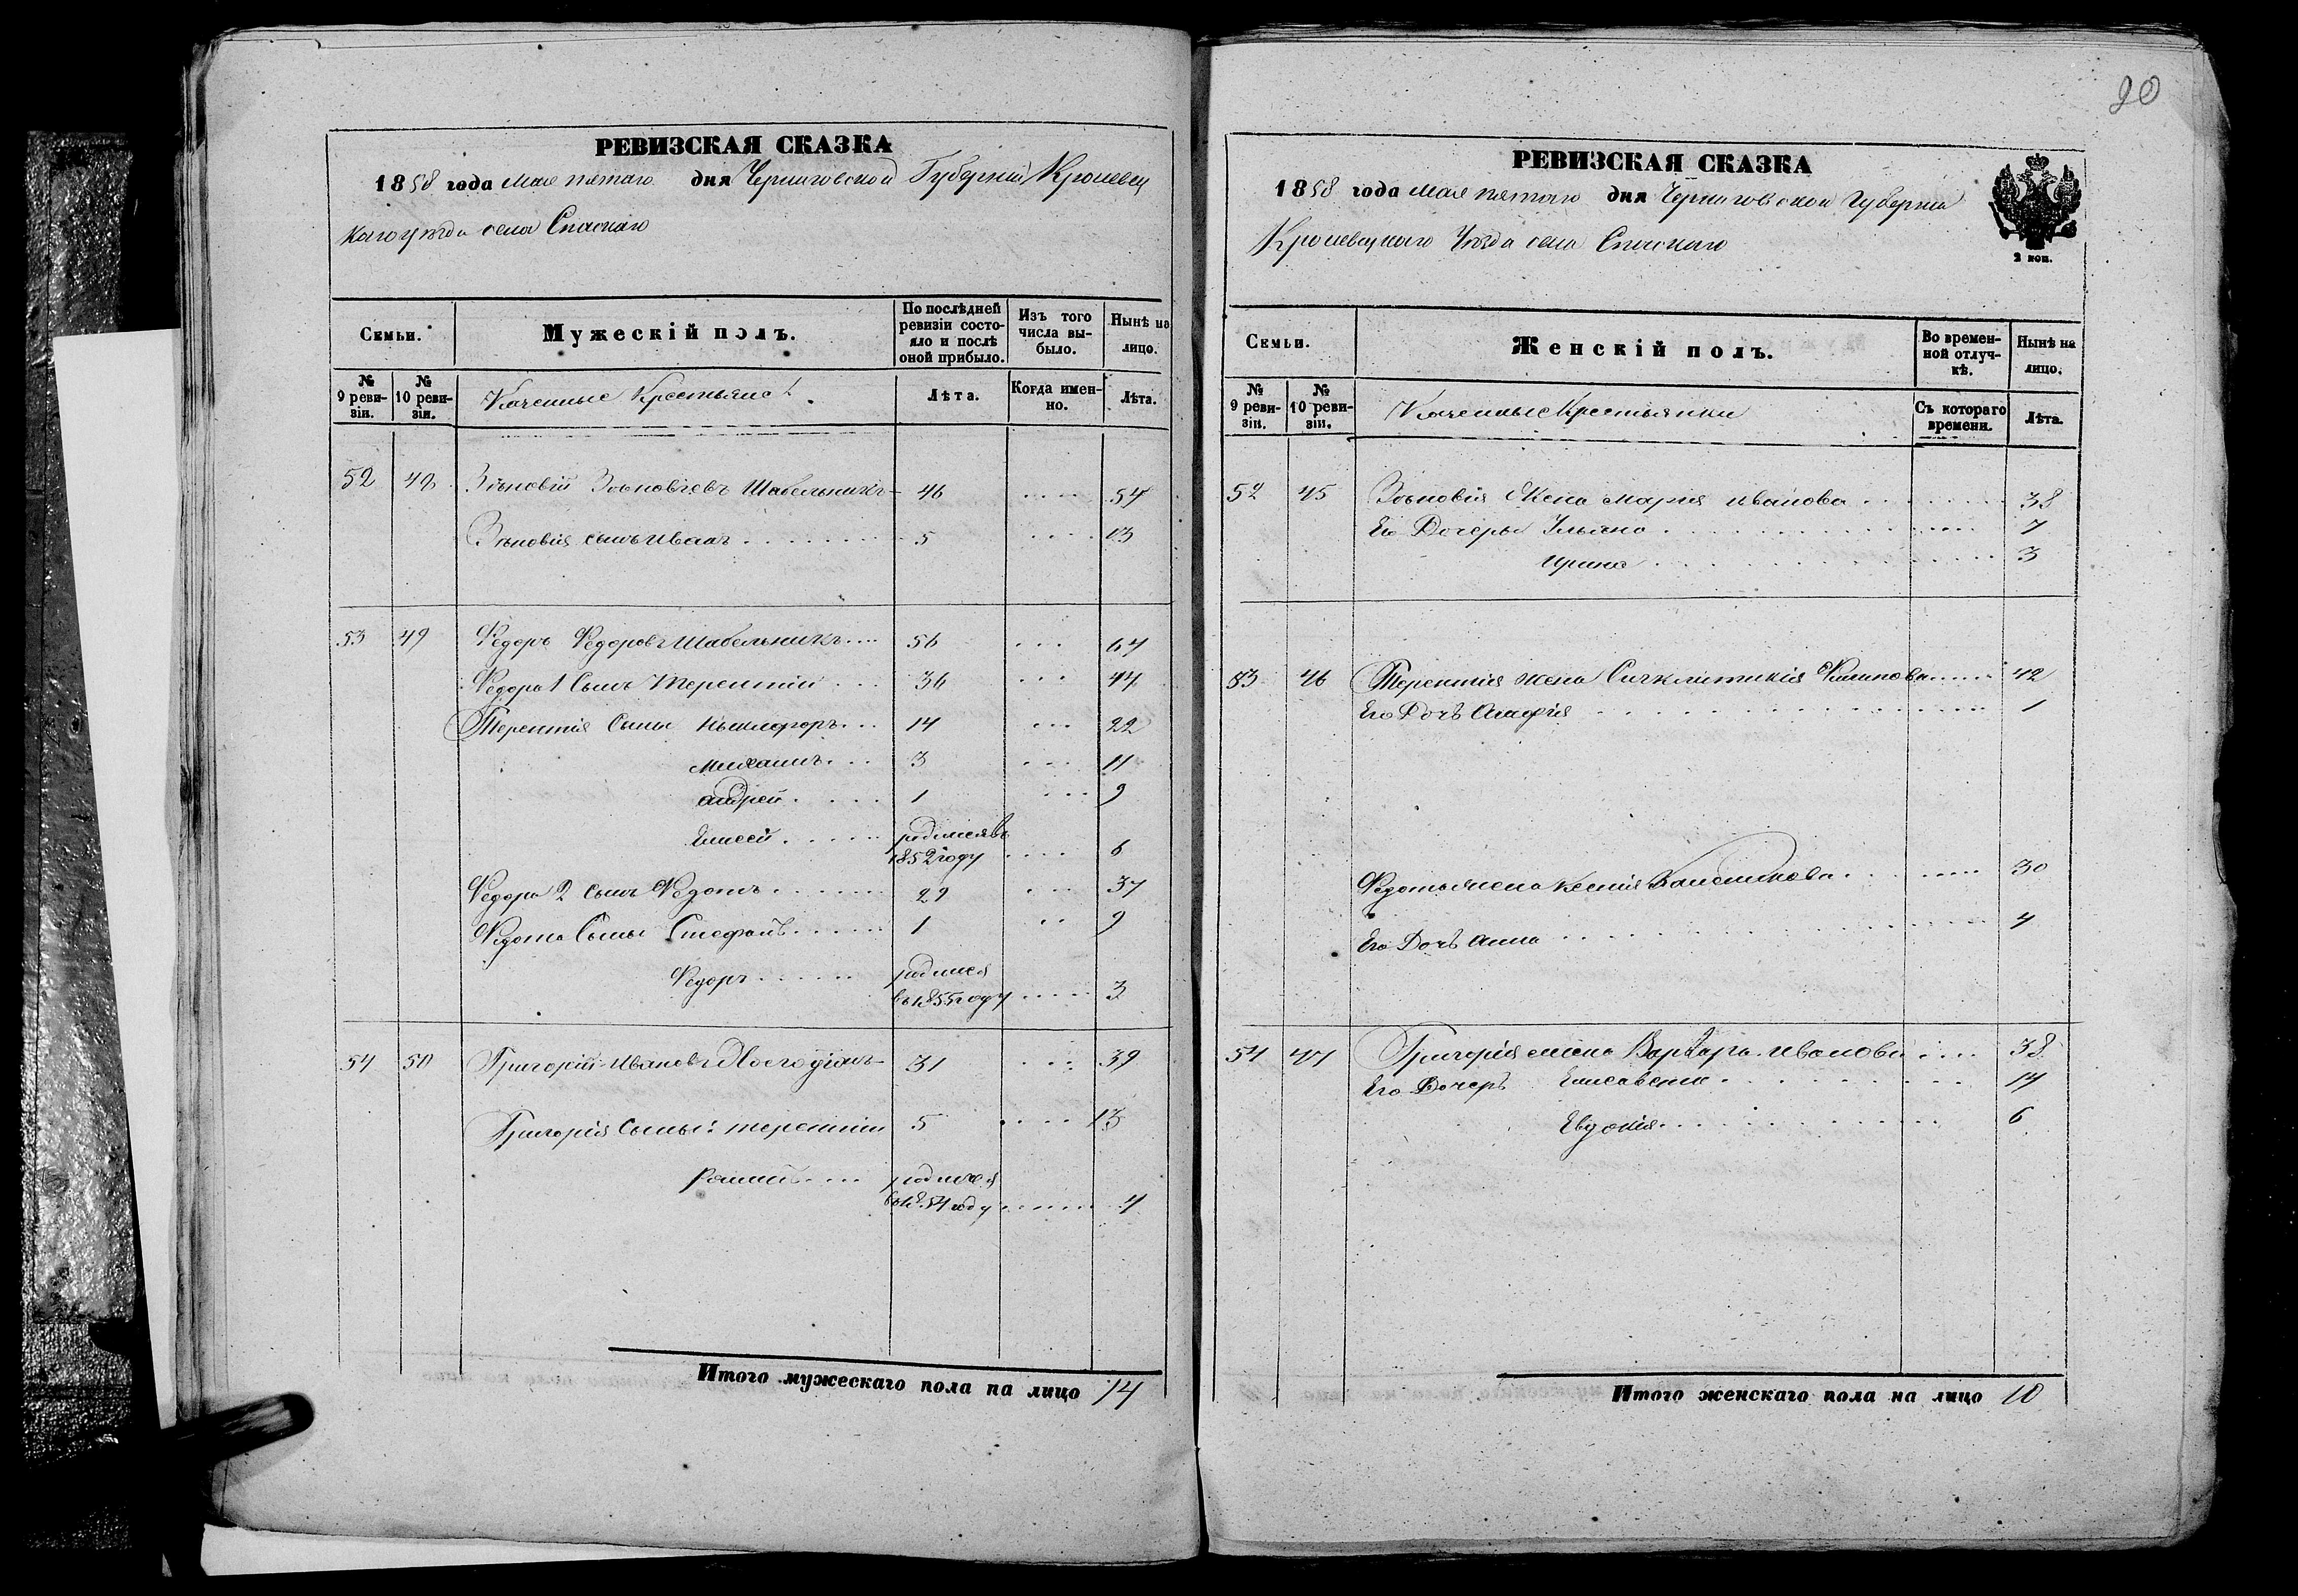 20
РЕВИЗСКАЯ СКАЗКА
1858 года мая пятаго дня Черниговской Губерніи Кролевец
каго уѣзда села Спаскаго
Семьи.
Мужескій полъ.
По послѣдней ревизіи состояло и послѣ оной прибыло.
Изъ того числа выбыло.
Нынѣ на лицо.
№ 9 ревизіи.
№ 10 ревизіи.
Казенные Крестьяне
Лѣта.
Когда именно.
Лѣта.
52 48 Зѣновій Зѣновіевъ Шабельникъ 46 .... 54
Зѣновія сынъ Иванъ 5 .... 13
53 49 Федоръ Федоровъ Шабельникъ 56 ... 64
Федора 1 Сынъ Терентій 36 ... 44
Терентія Сыны Никифоръ 14 ... 22
Михаилъ 3 .... 11
Андрей 1 ... 9
Елисей родился въ
1852 году .... 6
Федора 2 сынъ Федотъ 29 ... 37
Федота Сыны Стефанъ 1 .. 9
Федоръ родился
въ 1855 году ..... 3
54 50 Григорій Ивановъ 31 .... 39
Григорія Сыны: терентій 5 .... 13
родился
въ 1854 году ...... 4
Итого мужескаго пола на лицо 14
РЕВИЗСКАЯ СКАЗКА
1858 года мая пятаго дня Черниговской Губерніи
Кролевецкаго Уѣзда села Спаскаго
2 коп.
Семьи.
Женскій полъ.
Во временной отлучкѣ.
Нынѣ на лицо.
№ 9 ревизіи.
№ 10 ревизіи.
Казенные Крестьянки
Съ котораго времени.
Лѣта.
52 45 Зѣновія Жена Мария иванова 38
Его Дочеры Ульяна 7
Ирина 3
53 46 Терентія жена Филипова 42
Его Дочь Агафія 1
Федота жена Ксенія 30
Его Дочь Анна 4
54 47 Григорія жена Варвара иванова 38
Его Дочеръ Елисавета 14
Евдокія 6
Итого женскаго пола на лицо 10